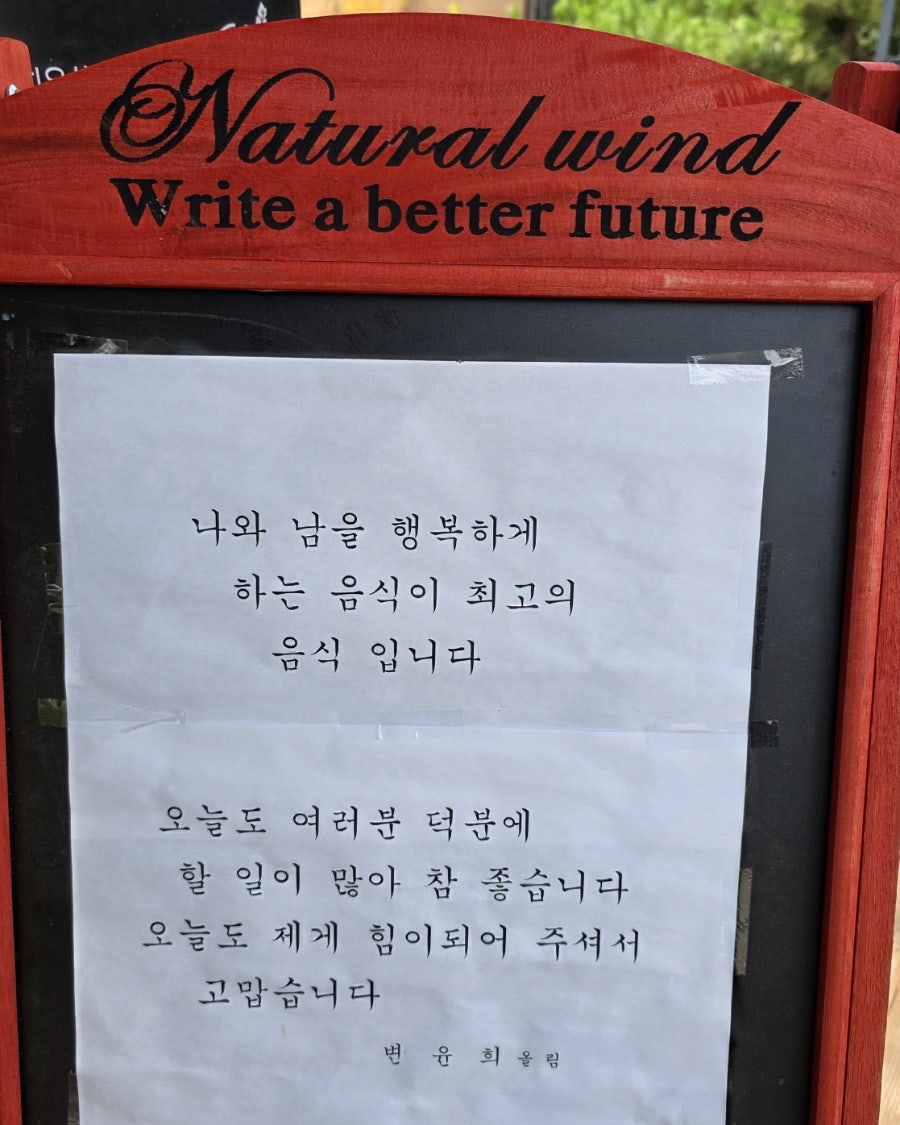 Natural wind
Write a better future
나와 남을 행복하게
하는 음식이 최고의
음식 입니다
오늘도 여러분 덕분에
할 일이 많아 참 좋습니다
오늘도 제게 힘이되어 주셔서
고맙습니다
변 윤 희 올 림